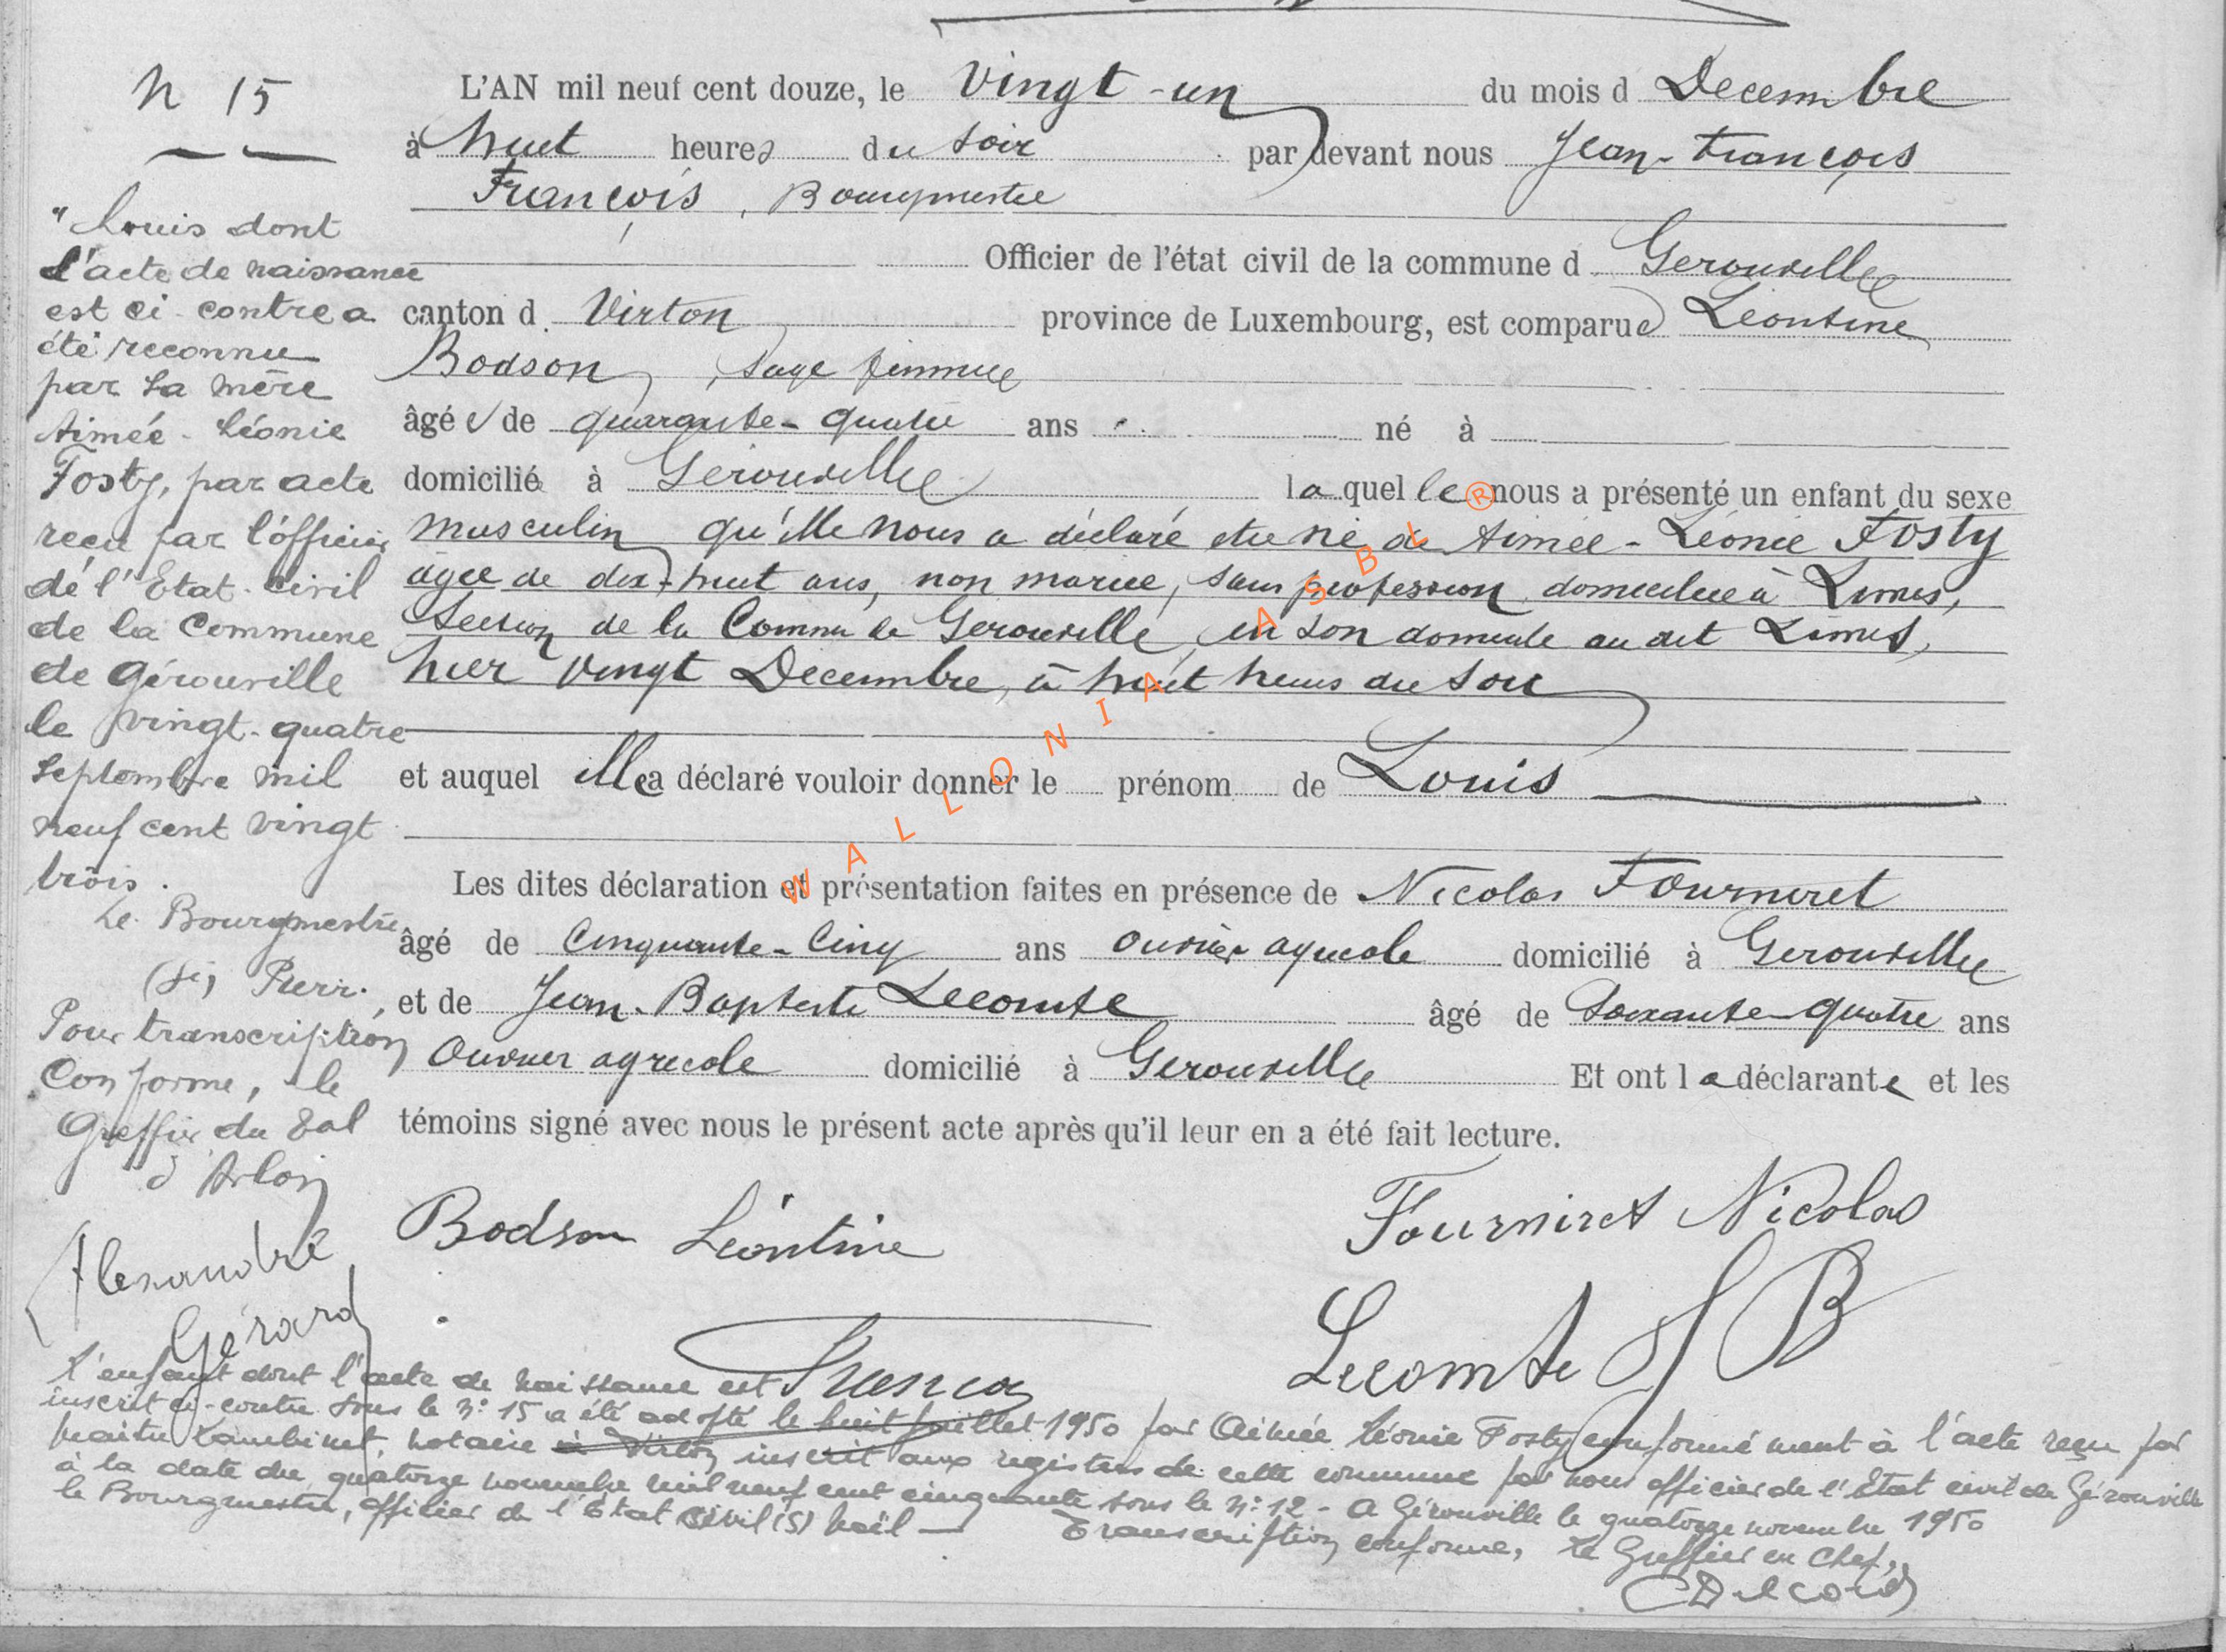 N 15
L'AN mil neuf cent douze, le Vingt-un du mois d Decembre
à huit heures du soir par devant nous Jean-François
François, Bourgmestre
Officier de l'état civil de la commune d Gerouville
canton d Virton province de Luxembourg, est comparue Léontine
Bodson, Sage femme
âgée de quarante-quatre ans né à
domiciliée à Gerouville laquelle nous a présenté un enfant du sexe
masculin qu'elle nous a déclaré être né de Aimée-Léonie Fosty
agée de dix-huit ans, non mariée, sans profession, domiciliée à Limes,
Section de la Commune de Gerouville, en son domicile au dit Limes,
hier vingt Decembre, à huit heures du soir
et auquel elle a déclaré vouloir donner le prénom de Louis
Les dites déclaration et présentation faites en présence de Nicolas Fourniret
âgé de Cinquante-Cinq ans ouvrier agricole domicilié à Gerouville
et de Jean-Baptiste Lecomte âgé de Soixante-quatre ans
Ouvrier agricole domicilié à Gerouville Et ont la déclarante et les
témoins signé avec nous le présent acte après qu'il leur en a été fait lecture.
Bodson Léontine Fourniret Nicolas
Lecomte J B
"Louis dont
l'acte de naissance
est ci-contre a
été reconnu
par sa mère
Aimée-Léonie
Fosty, par acte
reçu par l'officier
de l'Etat-civil
de la Commune
de Gérouville
le vingt-quatre
Septembre mil
neuf cent vingt
trois.
Le Bourgmestre
(Sé) Pierr.
Pour transcription
Conforme, le
Greffier du Bal
d'Arlon
Alexandre
Gérard
L'enfant dont l'acte de naissance est
inscrit ci-contre sous le n° 15 a été adopté le huit juillet 1950 par Aimée Léonie Fosty conformément à l'acte reçu par
Maître Lambinet, notaire à Virton inscrit aux registres de cette commune par nous officier de l'Etat civil de Gérouville
à la date du quatorze novembre mil neuf cent cinquante sous le n° 12 - A Gérouville le quatorze novembre 1950
le Bourgmestre, officier de l'Etat civil (S) Noël - Transcription conforme, Le Greffier en Chef,
WALLONIA ASBL ®